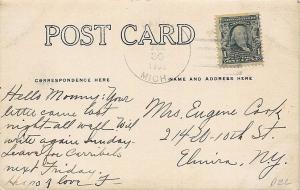 POST CARD
MICH.
CORRESPONDENCE HERE
NAME AND ADDRESS HERE
Hello Mommy: Your
little came last
night. all well. Will
write again Sunday.
Leave for
next Friday.
love
Mrs. Eugene Cook
214 W-10th St.
Elmira, N.Y.